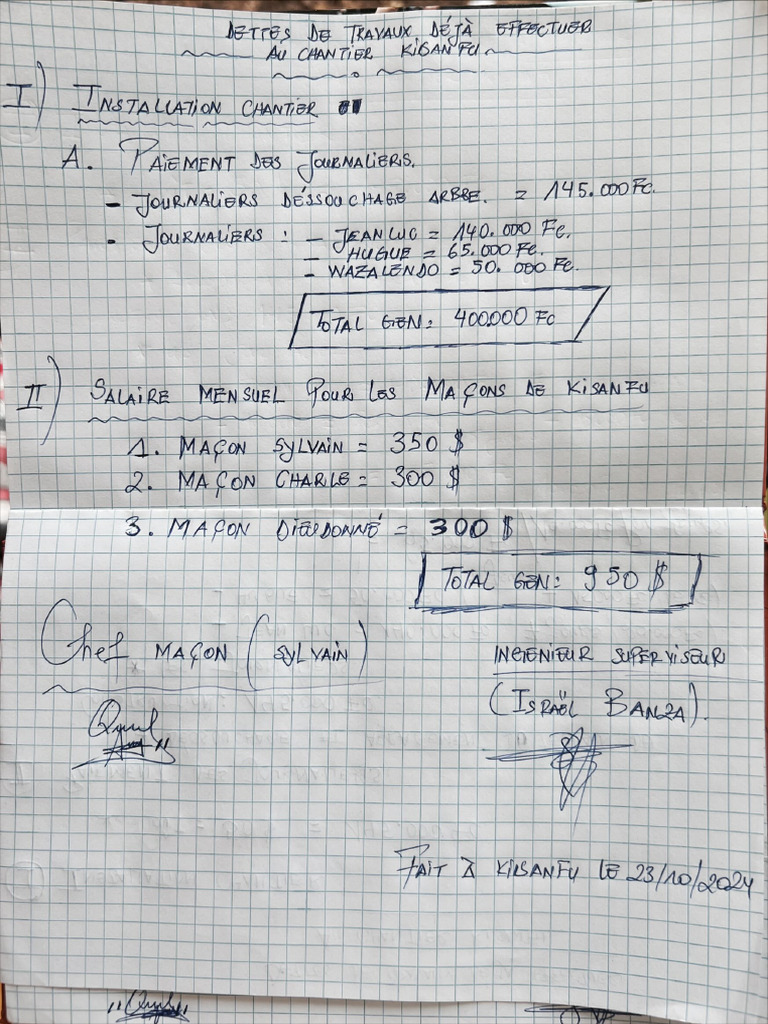 DETTES DE TRAVAUX DÉJÀ EFFECTUER
AU CHANTIER KISANFU
I) INSTALLATION CHANTIER
A. PAIEMENT DES JOURNALIERS.
- JOURNALIERS DÉSSOUCHAGE ARBRE. = 145.000 FC.
- JOURNALIERS : - JEAN LUC = 140.000 FC.
- HUGUE = 65.000 FC.
- WAZALENDO = 50.000 FC.
TOTAL GEN: 400.000 FC
II) SALAIRE MENSUEL POUR LES MAÇONS DE KISANFU
1. MAÇON SYLVAIN = 350 $
2. MAÇON CHARLE = 300 $
3. MAÇON DIEUDONNÉ = 300 $
TOTAL GEN: 950 $
Chef MAÇON (SYLVAIN)
INGENIEUR SUPERVISEUR
(ISRAËL BANZA).
FAIT À KISANFU LE 23/10/2024